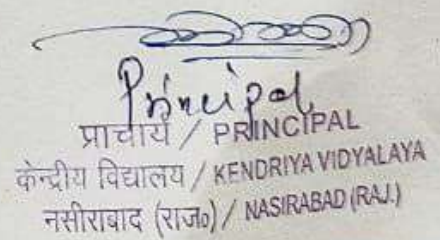 Principal
प्राचार्य / PRINCIPAL
केन्द्रीय विद्यालय / KENDRIYA VIDYALAYA
नसीराबाद (राज०) / NASIRABAD (RAJ.)